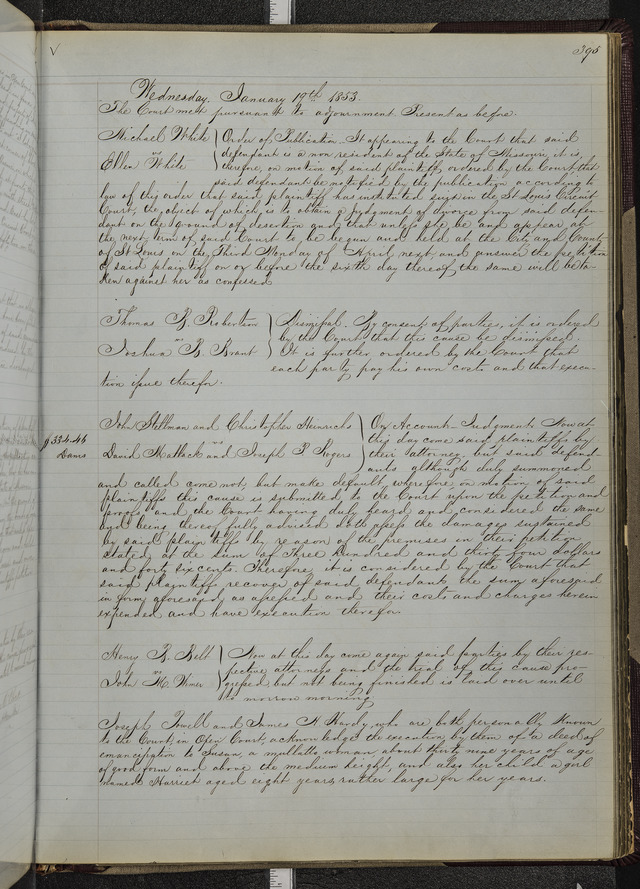 395
Wednesday, January 19th 1853.
The Court met pursuant to adjournment Present as before.
Michael White
vs
Ellen White
Order of Publication. It appearing to the Court that said
defendant is a non resident of the State of Missouri, it is,
therefore, on motion of said plaintiff, ordered by the Court, that
said defendant be notified by the publication according to
law of this order that said plaintiff has instituted suit in the St Louis Circuit
Court, the object of which is to obtain a judgment of divorce from said defen-
dant on the ground of desertion and that unless she be and appear at
the next term of said Court to be begun and held at the City and County
of St Louis on the Third Monday of April next, and answer the petition
of said plaintiff on or before the sixth day thereof, the same will be ta-
ken against her as confessed
Thomas R. Robertson
vs
Joshua B. Brant
Dismissal. By consent of parties, it is ordered
by the Court that this cause be dismissed.
It is further ordered by the Court that
each party pay his own costs and that execu-
tion issue therefor.
$334.46
Dams
John Stellman and Christopher Heinrichs
vs
David Matlack and Joseph P Rogers
On Account - Judgment. Now at
this day come said plaintiffs by
their attorney, but said defend-
ants although duly summoned
and called come not, but make default, wherefore, on motion of said
plaintiffs this cause is submitted to the Court upon the petition and
proofs and the Court having duly heard and considered the same
and being thereof fully advised doth assess the damages sustained
by said plaintiffs by reason of the premises in their petition
stated, at the sum of Three hundred and thirty four dollars
and forty six cents. Therefore it is considered by the Court that
said plaintiffs recover of said defendants the sum aforesaid
in form aforesaid, as assessed and their costs and charges herein
expended, and have execution therefor.
Henry R. Bell
vs
John M. Wimer
Now at this day come again said parties by their res-
pective attorneys and the trial of this cause pro-
gressed but not being finished is laid over until
to morrow morning.
Joseph Powell and James H Hardy, who are both personally known
to the Court, in Open Court, acknowledge the execution by them of a deed of
emancipation to Susan, a mullatto woman, about thirty nine years of age
of good form and above the medium height, and also her child a girl
named Harriet aged eight years, rather large for her years.